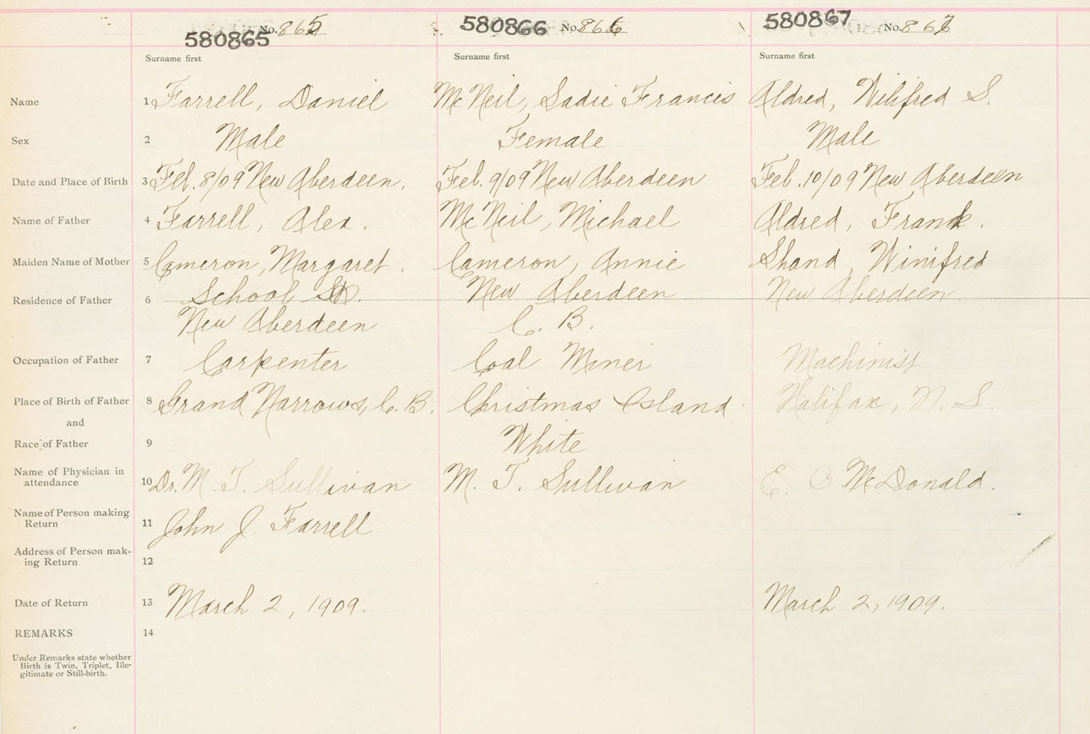 580865 No. 865
580866 No. 866
580867 No. 867
Surname first
Surname first
Surname first
Name 1 Farrell, Daniel
McNeil, Sadie Francis
Aldred, Wilifred S.
Sex 2 Male
Female
Male
Date and Place of Birth 3 Feb. 8/09 New Aberdeen.
Feb. 9/09 New Aberdeen
Feb. 10/09 New Aberdeen
Name of Father 4 Farrell, Alex.
McNeil, Michael
Aldred, Frank.
Maiden Name of Mother 5 Cameron, Margaret.
Cameron, Annie
Shand, Winifred
Residence of Father 6 School St.
New Aberdeen
New Aberdeen
C. B.
New Aberdeen.
Occupation of Father 7 Carpenter
Coal Miner
Machinist
Place of Birth of Father 8 Grand Narrows, C. B.
Christmas Island
Halifax, N. S.
and
Race of Father 9
White
Name of Physician in
attendance 10 Dr. M. T. Sullivan
M. T. Sullivan
E. O McDonald.
Name of Person making
Return 11 John J. Farrell
Address of Person mak-
ing Return 12
Date of Return 13 March 2, 1909.
March 2, 1909.
REMARKS 14
Under Remarks state whether
Birth is Twin, Triplet, Ille-
gitimate or Still-birth.